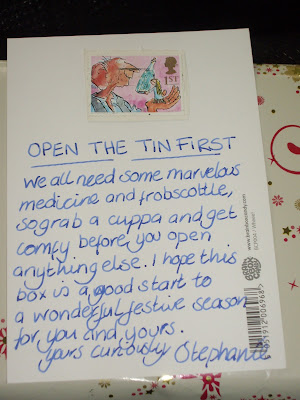 1ST
OPEN THE TIN FIRST
We all need some marvelous
medicine and frobscottle,
so grab a cuppa and get
comfy before you open
anything else. I hope this
box is a good start to
a wonderful festive season
for you and yours.
yours curiously Stephanie